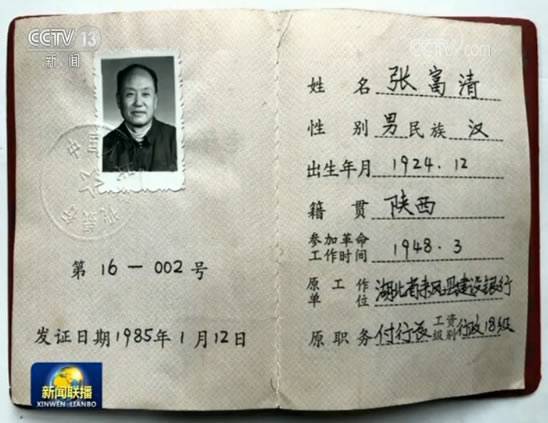 CCTV 13
新闻
CCTV.com
第16-002号
发证日期1985年1月12日
姓名 张富清
性别 男 民族 汉
出生年月 1924.12
籍贯 陕西
参加革命工作时间 1948.3
原工作单位 湖北省来凤县建设银行
原职务 付行长 工资级别 行政18级
新闻联播
XINWEN LIANBO